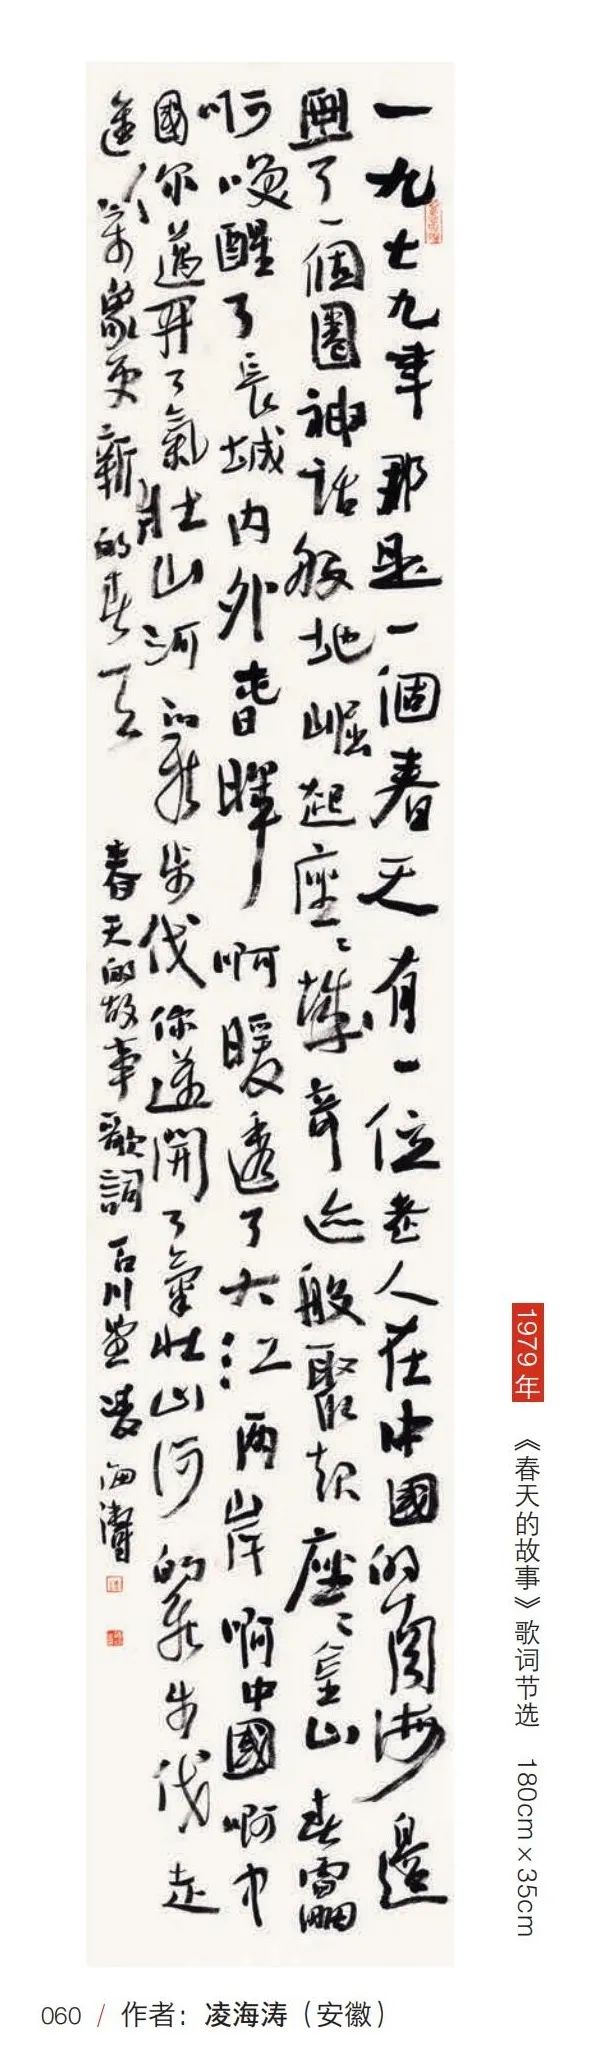 一九七九年那是一個春天有一位老人在中國的南海邊
畫了一個圈神話般地崛起座々城奇迹般聚起座々金山春靁
啊喚醒了長城内外旾暉啊暖透了大江两岸啊中國啊中
國你邁開了氣壯山河的新步伐你邁開了氣壯山河的新步伐走
進萬象更新的春天 春天的故事歌詞 石川 凌海濤
1979年 《春天的故事》歌词节选 180cm×35cm
060 / 作者：凌海涛（安徽）